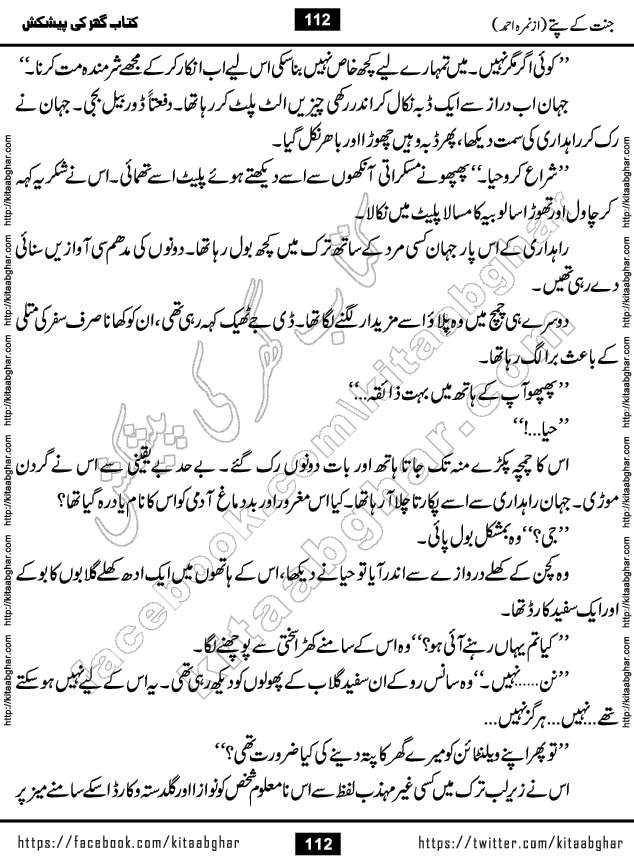 جنت کے پتے (از نمرہ احمد)
112
کتاب گھر کی پیشکش
’’کوئی اگر مگر نہیں۔ میں تمہارے لیے کچھ خاص نہیں بنا سکی اس لیے اب انکار کر کے مجھے شرمندہ مت کرنا۔‘‘
جہان اب دراز سے ایک ڈبہ نکال کر اندر رکھی چیزیں الٹ پلٹ کر رہا تھا۔ دفعتاً ڈور بیل بجی۔ جہان نے
رک کر راہداری کی سمت دیکھا، پھر ڈبہ وہیں چھوڑا اور باہر نکل گیا۔
’’شراع کرو حیا۔‘‘ پھپھو نے مسکراتی آنکھوں سے اسے دیکھتے ہوئے پلیٹ اسے تھمائی۔ اس نے شکریہ کہہ
کر چاول اور تھوڑا سا لوبیہ کا مسالا پلیٹ میں نکالا۔
راہداری کے اس پار جہان کسی مرد کے ساتھ ترک میں کچھ بول رہا تھا۔ دونوں کی مدھم سی آوازیں سنائی
دے رہی تھیں۔
دوسرے ہی چمچ میں وہ پلاؤ اسے مزیدار لگنے لگا تھا۔ ڈی جے ٹھیک کہہ رہی تھی، ان کو کھانا صرف سفر کی متلی
کے باعث برا لگ رہا تھا۔
’’پھپھو آپ کے ہاتھ میں بہت ذائقہ...‘‘
’’حیا...!‘‘
اس کا چمچہ پکڑے منہ تک جاتا ہاتھ اور بات دونوں رک گئے۔ بے حد بے یقینی سے اس نے گردن
موڑی۔ جہان راہداری سے اسے پکارتا چلا آ رہا تھا۔ کیا اس مغرور اور بد دماغ آدمی کو اس کا نام یاد رہ گیا تھا؟
’’جی؟‘‘ وہ بمشکل بول پائی۔
وہ کچن کے کھلے دروازے سے اندر آیا تو حیا نے دیکھا، اس کے ہاتھوں میں ایک ادھ کھلے گلابوں کا بوکے
اور ایک سفید کارڈ تھا۔
’’کیا تم یہاں رہنے آئی ہو؟‘‘ وہ اس کے سامنے کھڑا سختی سے پوچھنے لگا۔
’’نن.....نہیں۔‘‘ وہ سانس روکے ان سفید گلاب کے پھولوں کو دیکھ رہی تھی۔ یہ اس کے لیے نہیں ہو سکتے
تھے...نہیں...ہرگز نہیں...
’’تو پھر اپنے ویلنٹائن کو میرے گھر کا پتہ دینے کی کیا ضرورت تھی؟‘‘
اس نے زیر لب ترک میں کسی غیر مہذب لفظ سے اس نامعلوم شخص کو نوازا اور گلدستہ و کارڈ اسکے سامنے میز پر
https://facebook.com/kitaabghar
112
https://twitter.com/kitaabghar
http://kitaabghar.com http://kitaabghar.com http://kitaabghar.com http://kitaabghar.com http://kitaabghar.com http://kitaabghar.com
http://kitaabghar.com http://kitaabghar.com http://kitaabghar.com http://kitaabghar.com http://kitaabghar.com http://kitaabghar.com
کتاب گھر کی پیشکش
facebook.com/kitaabghar
kitaabghar.com